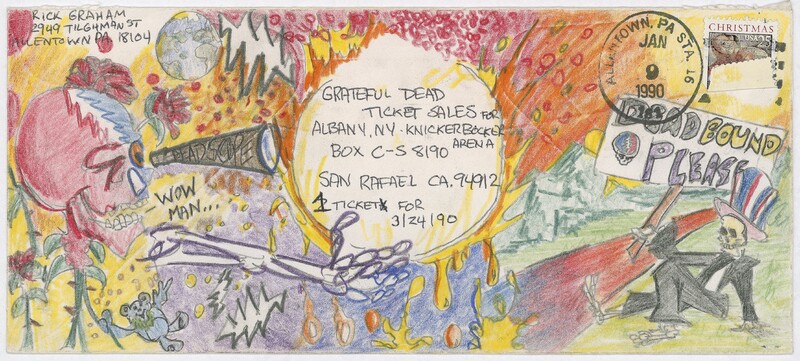 RICK GRAHAM
2949 TILGHMAN ST
ALLENTOWN PA 18104
ALLENTOWN, PA STA.
JAN
9
1990
CHRISTMAS
USA 25
GRATEFUL DEAD
TICKET SALES FOR
ALBANY, NY - KNICKERBOCKER
ARENA
BOX C-S 8190
SAN RAFAEL CA. 94912
1 TICKET FOR
3/24/90
DEADSCOPE
WOW
MAN...
DEAD BOUND
PLEASE